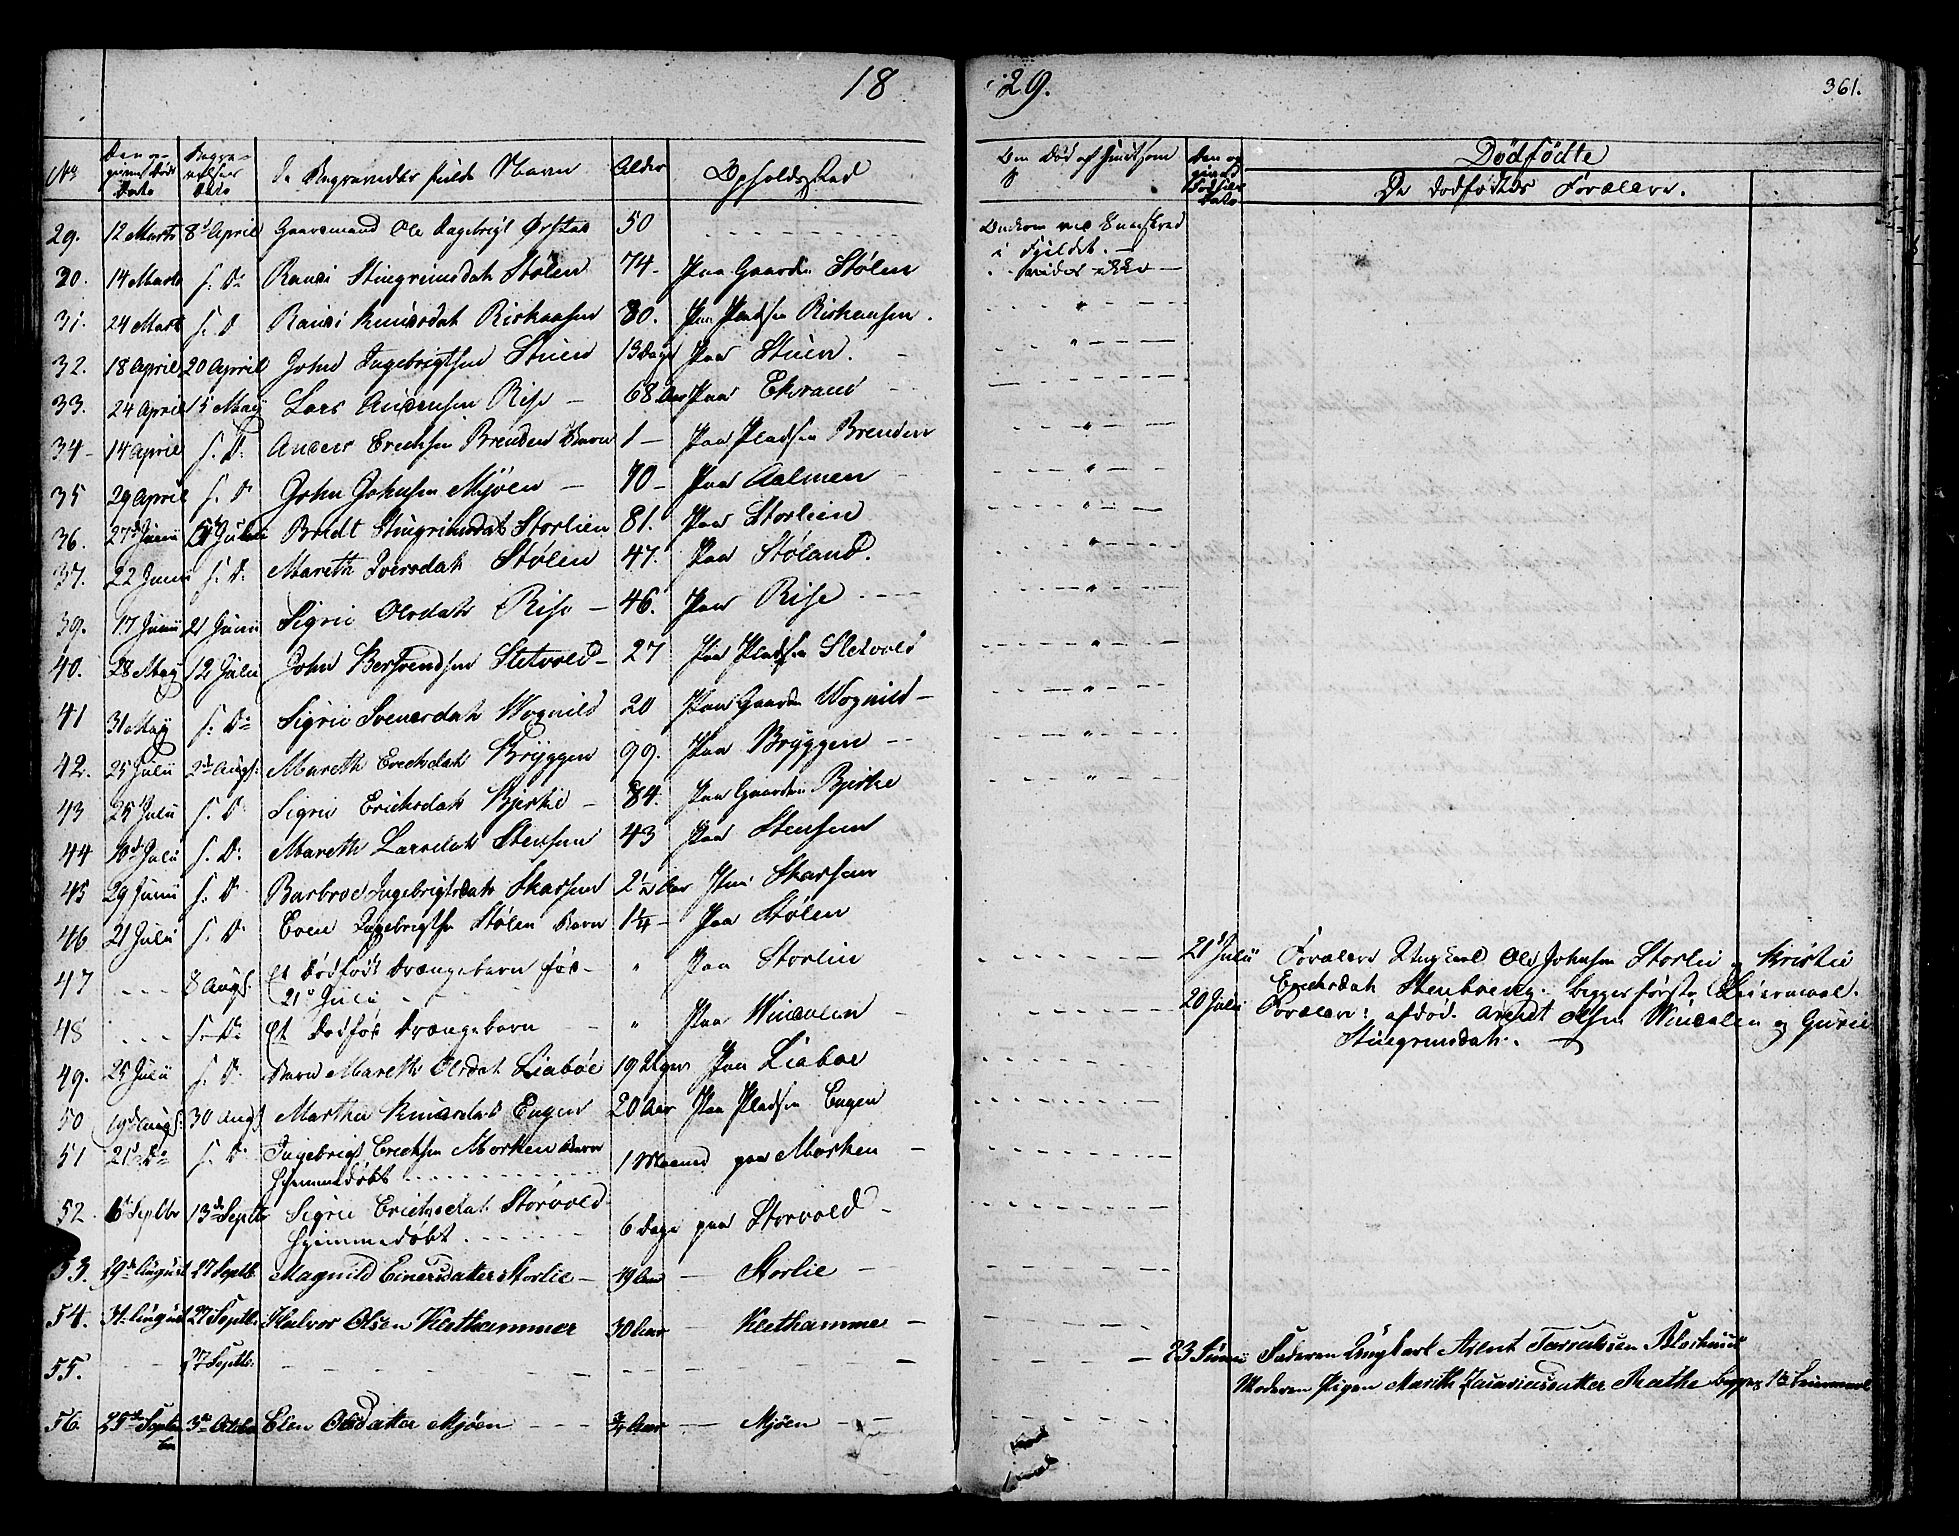 18 29.
361.
No Den opgivne Døds Dato Begravelses Dato De Begravedes fulde Navn Alder Opholdssted
Om Død af Dødfødte
De Dødfødtes Forældre.
29. 12 Marts 8d April Gaardmand Ole Ingebrigt Ørstad 50 - - - Omkom ved Sneeskred
i Fjeldet. -
30. 14 Marts s. D. Randi Stingrimsdat Stølen 74 - Paa Gaarden Stølen vides ikke -
31. 24 Mart s. D Randi Knudsdat Rishaugen 80. Paa Pladsen Rishaugen.
32. 18 April 20 April John Ingebrigtsen Stuen 13 Dage Paa Stuen.
33. 24 April 15 May Lars Andersen Rise - 68 Aar Paa Ekrand
34 - 14 April s. D. Anders Erichsen Brenden Barn 1 - Paa Pladsen Brenden
35 29 April s. D John Johnsen Mjøen - 70 - Paa Aalmen
36. 27d Junii Julii Boldt Stingrimsdat Storlien 81. Paa Storlien
37. 22 Junii s. D. Mareth Iversdat Stølen 47. Paa Støland.
39. 17 Junii 21 Junii Sigrie Olsdat Rise - 46. Paa Rise
40. 28 May 12 Julii John Bersvendsen Sletvold - 27 Paa Pladsen Sletvold
41 31 May s. D. Sigrie Svendsdat Wognild 20 Paa Gaarden Wognild -
42. 25 Julii 2d Augs. Mareth Erichsdat Bryggen 99. Paa Bryggen
43 25 Julii s. D. Sigrie Erichsdat Bjerke - 84. Paa Gaarden Bjerke
44 10d Julii s. D. Mareth Larsdat Stensem 43 Paa Stensem
45 29 Junii s. D Barbroe Ingebrigtsdat Skarsem 2½ Aar Paa Skarsem
46 21 Julii s. D. Even Ingebrigtsen Stølen Barn 1¼ - Paa Stølen
47 - - - 8 Augs. Et Dødfødt Drængebarn fød
21d Julii - " Paa Storlien 21d Julii Forældre Ungkarl Ole Johnsen Storlie og Kristie
Erichsdat Stenbreng. begges første Leiermaal.
48 s. D. Et Dødfød Drængebarn " Paa Windalen - 20 Julii Forældre: afdød. Arent Olsen Windalen og Gurie
Stingrimsdat.
49. 25 Julii s. D. Barn Mareth Olsdat Liabøe 19 Uger Paa Liaboe
50 19d Augs. 30 Augs. Marthe Knudsdat Engen 20 Aar Paa Pladsen Engen
51 21d D. s. D. Ingebrigt Erichsen Morken Barn
Hjemmedøbt 1 Maaned paa Morken -
52. 6d Septbr 13de Septbr Sigrie Erichsdat Storvold
Hjemmedøbt 6 Dage paa Storvold -
53. 29de August 27 Septb. Magnild Einersdatter Storlie - 49 Aar - Storlie -
54. 31te August 27 Septb. Halvor Olsen Klethammer 30 Aar - Klethammer -
55. - - 27 Septb. - - - 23 Junii Faderen Ungkarl Arent Blochuus
Moderen Pigen Marith Ræthe begges 1ste Leiermaal
56. 25de Septem
ber 3de Octbr Elen Olsdatter Mjøen - - - ¾ Aar - Mjøen - -